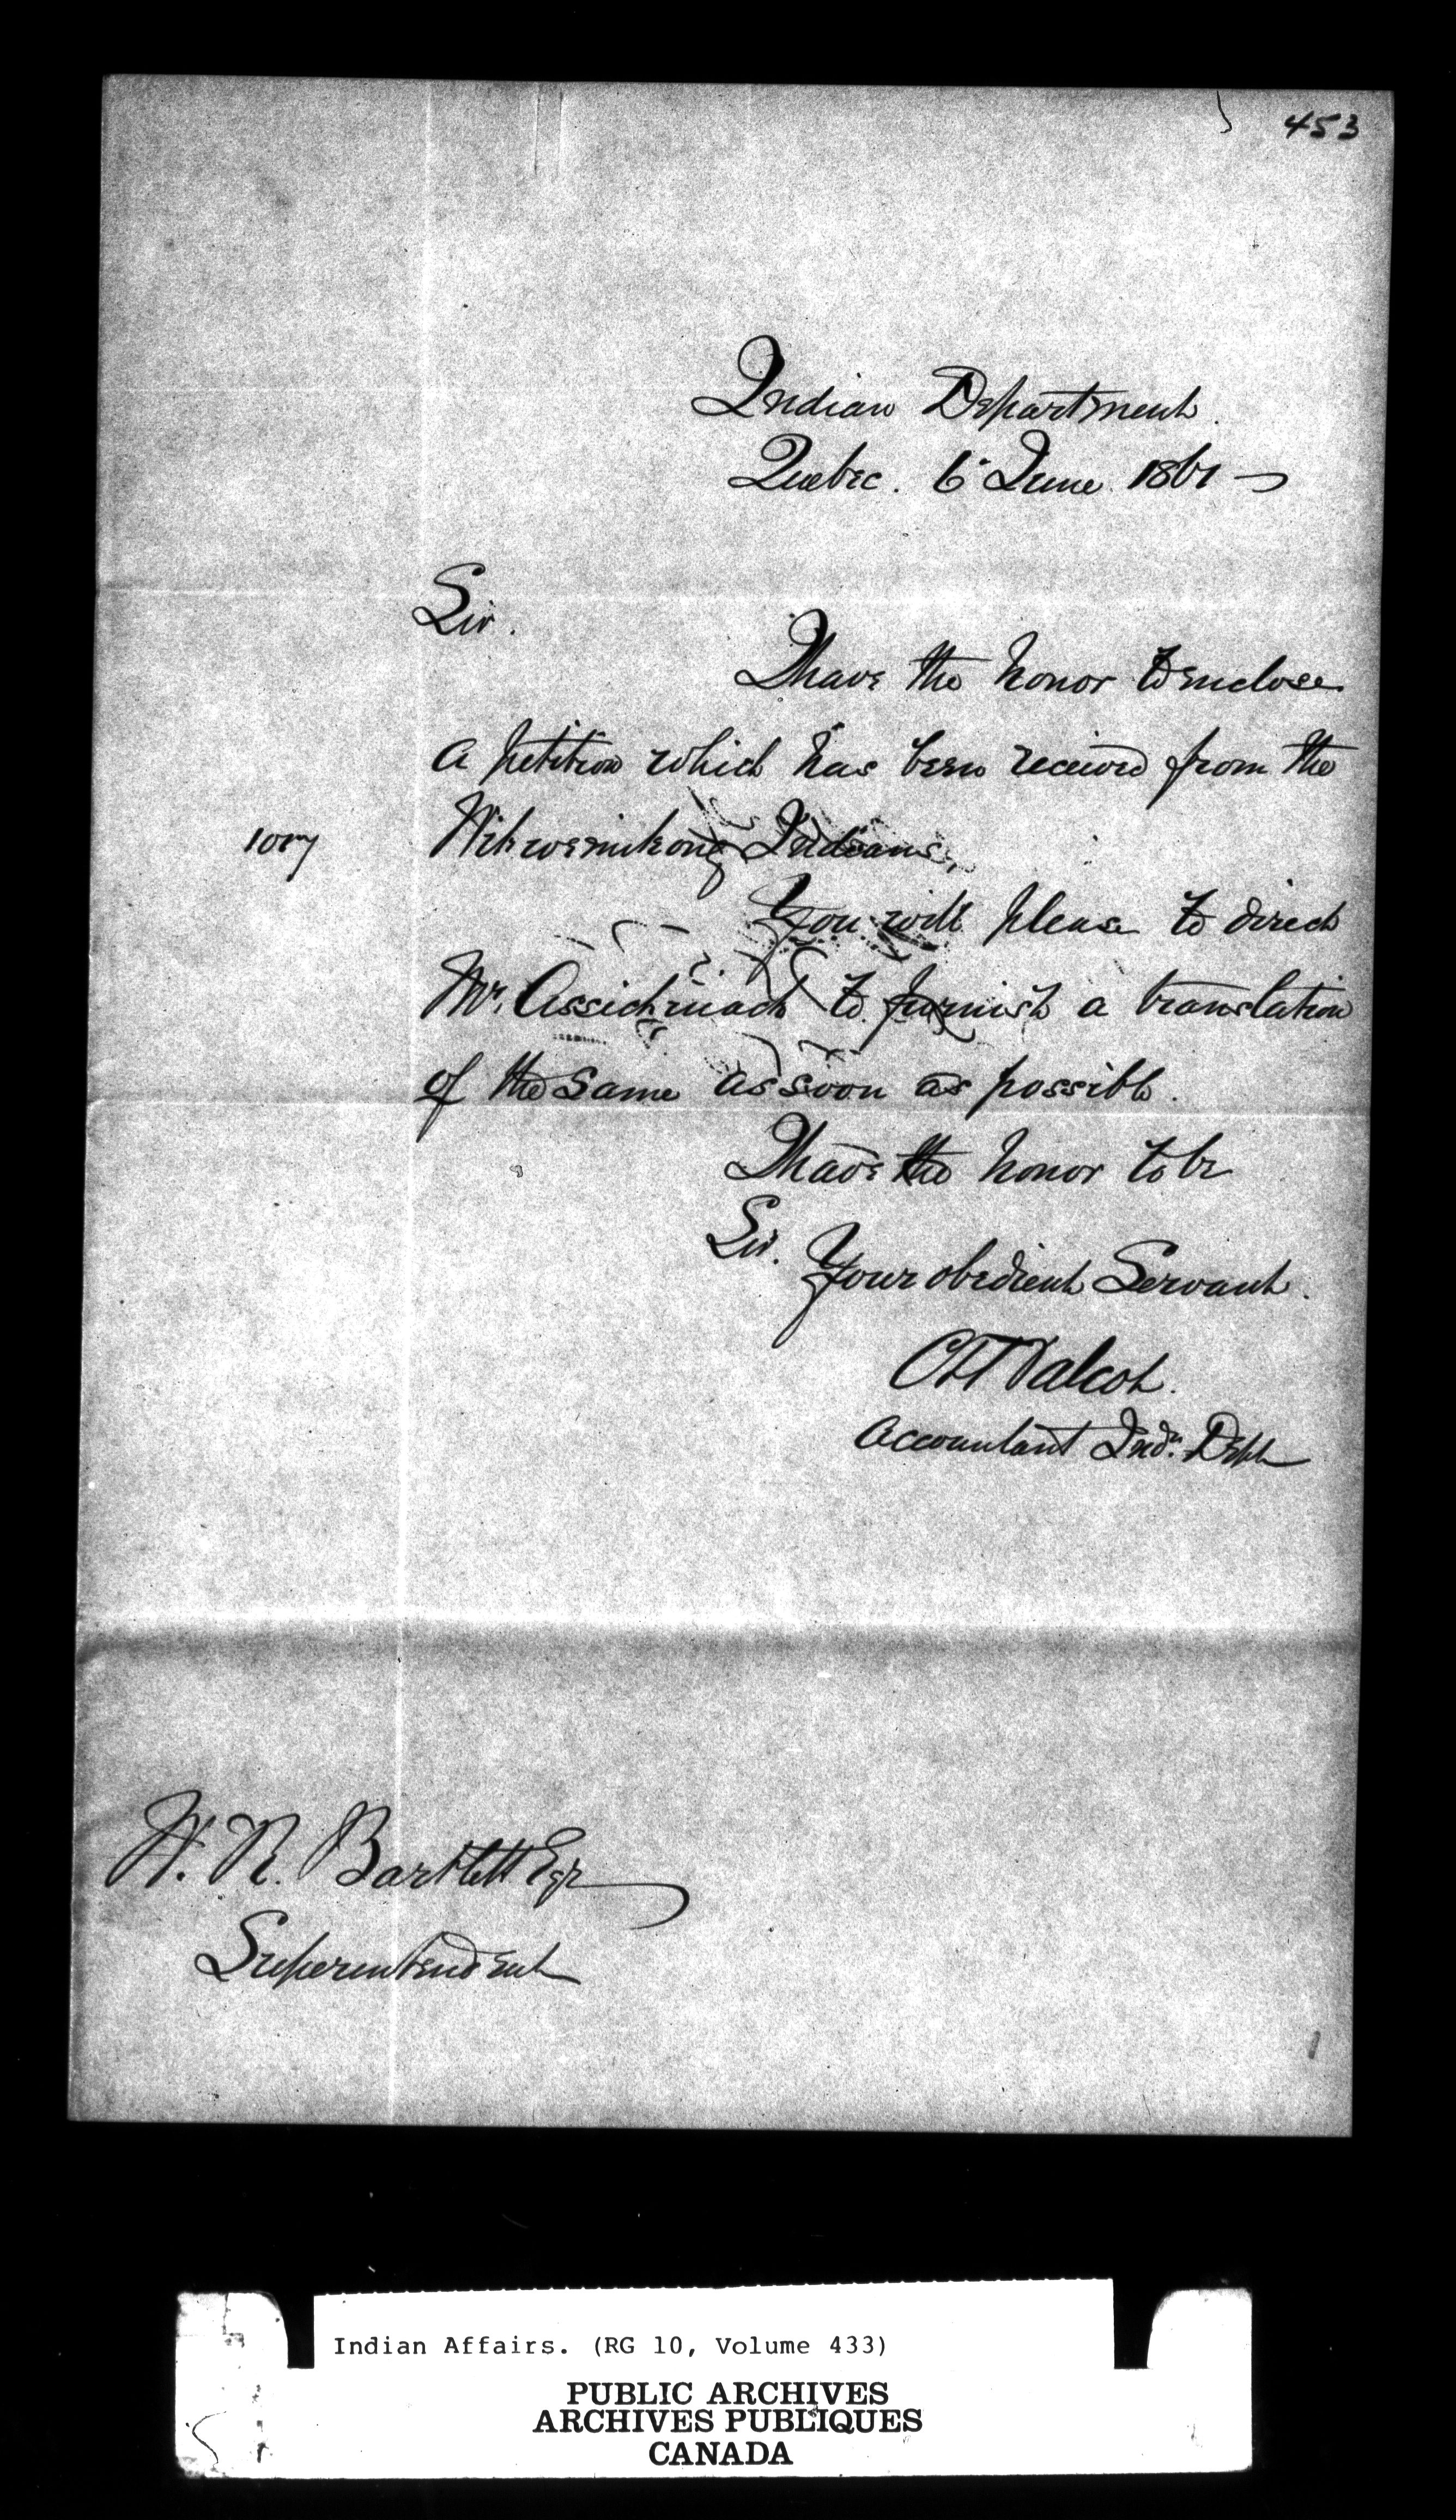 453
Indian Department.
Quebec. 6 June 1861
Sir.
I have the honor to enclose
a petition which has been received from the
Wikwemikong Indians,
You will please to direct
Mr. Assickinack to furnish a translation
of the same as soon as possible.
I have the honor to be
Sir.
Your obedient Servant.
C T Walcot.
Accountant Indn. Dept
W. R. Bartlett Esqr
Superintendent
Indian Affairs. (RG 10, Volume 433)
PUBLIC ARCHIVES
ARCHIVES PUBLIQUES
CANADA